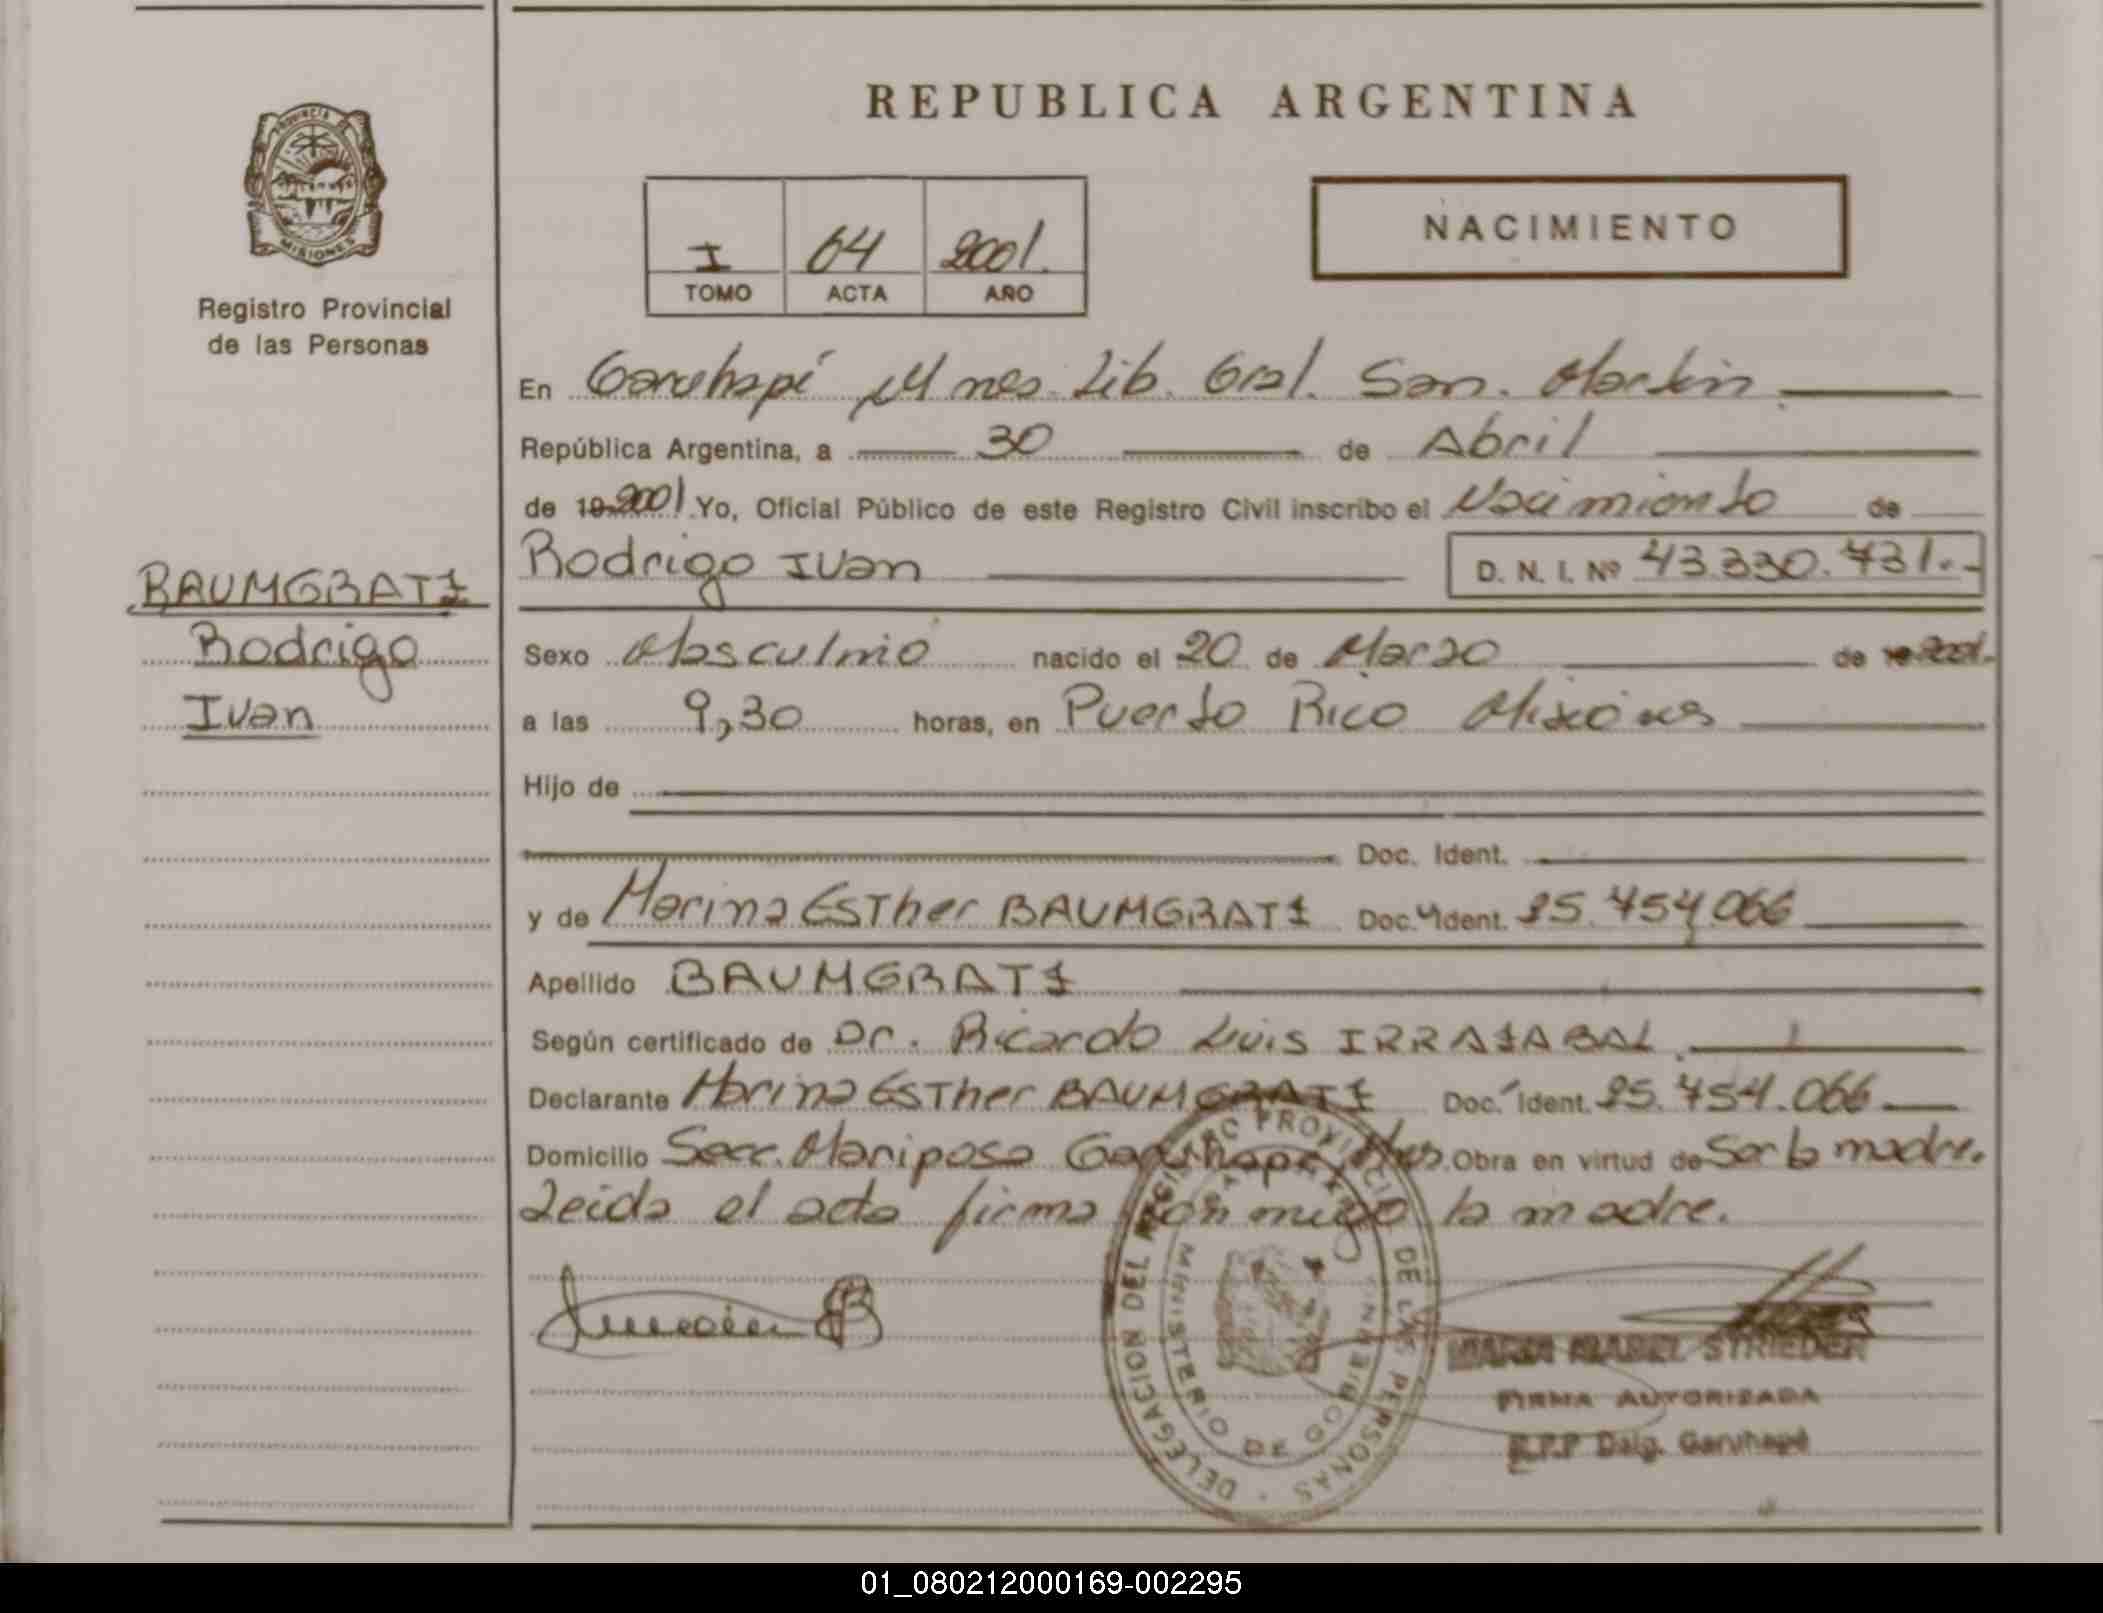 REPUBLICA ARGENTINA
PROVINCIA DE
MISIONES
Registro Provincial
de las Personas
I 64 2001.
TOMO ACTA AÑO
NACIMIENTO
En Garuhapé Mnes. Lib. Gral. San. Martin
República Argentina, a 30 de Abril
de 19 2001 Yo, Oficial Público de este Registro Civil inscribo el Nacimiento de
Rodrigo Ivan D. N. I. Nº 43.330.731.-
BAUMGRATZ
Rodrigo
Ivan
Sexo Masculino nacido el 20 de Marzo de 19 2001.
a las 9,30 horas, en Puerto Rico Misiones
Hijo de
Doc. Ident.
y de Marina Esther BAUMGRATZ Doc. Ident. 25.454.066
Apellido BAUMGRATZ
Según certificado de Dr. Ricardo Luis IRRAZABAL
Declarante Marina Esther BAUMGRATZ Doc. Ident. 25.454.066
Domicilio Secc. Mariposa Garuhapé, Mnes. Obra en virtud de Ser la madre.
Leida el acta firma conmigo la madre.
DELEGACION DEL REGISTRO PROVINCIAL DE LAS PERSONAS
MINISTERIO DE GOBIERNO
STRIEDER
FIRMA AUTORIZADA
R.P.P Dalg. Garuhapé
01_080212000169-002295